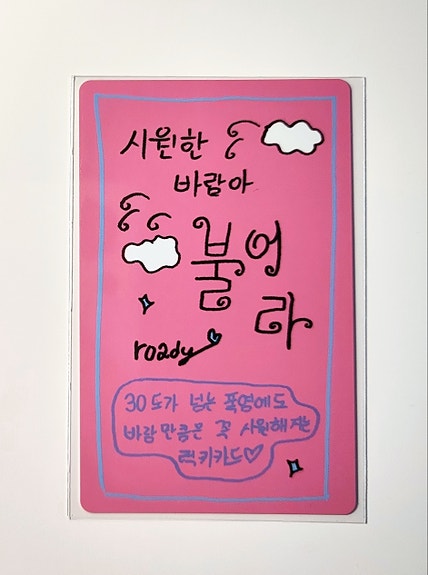 시원한
바람아
불어
라
roady
30도가 넘는 폭염에도
바람만큼은 꼭 시원해지는
럭키카드♡